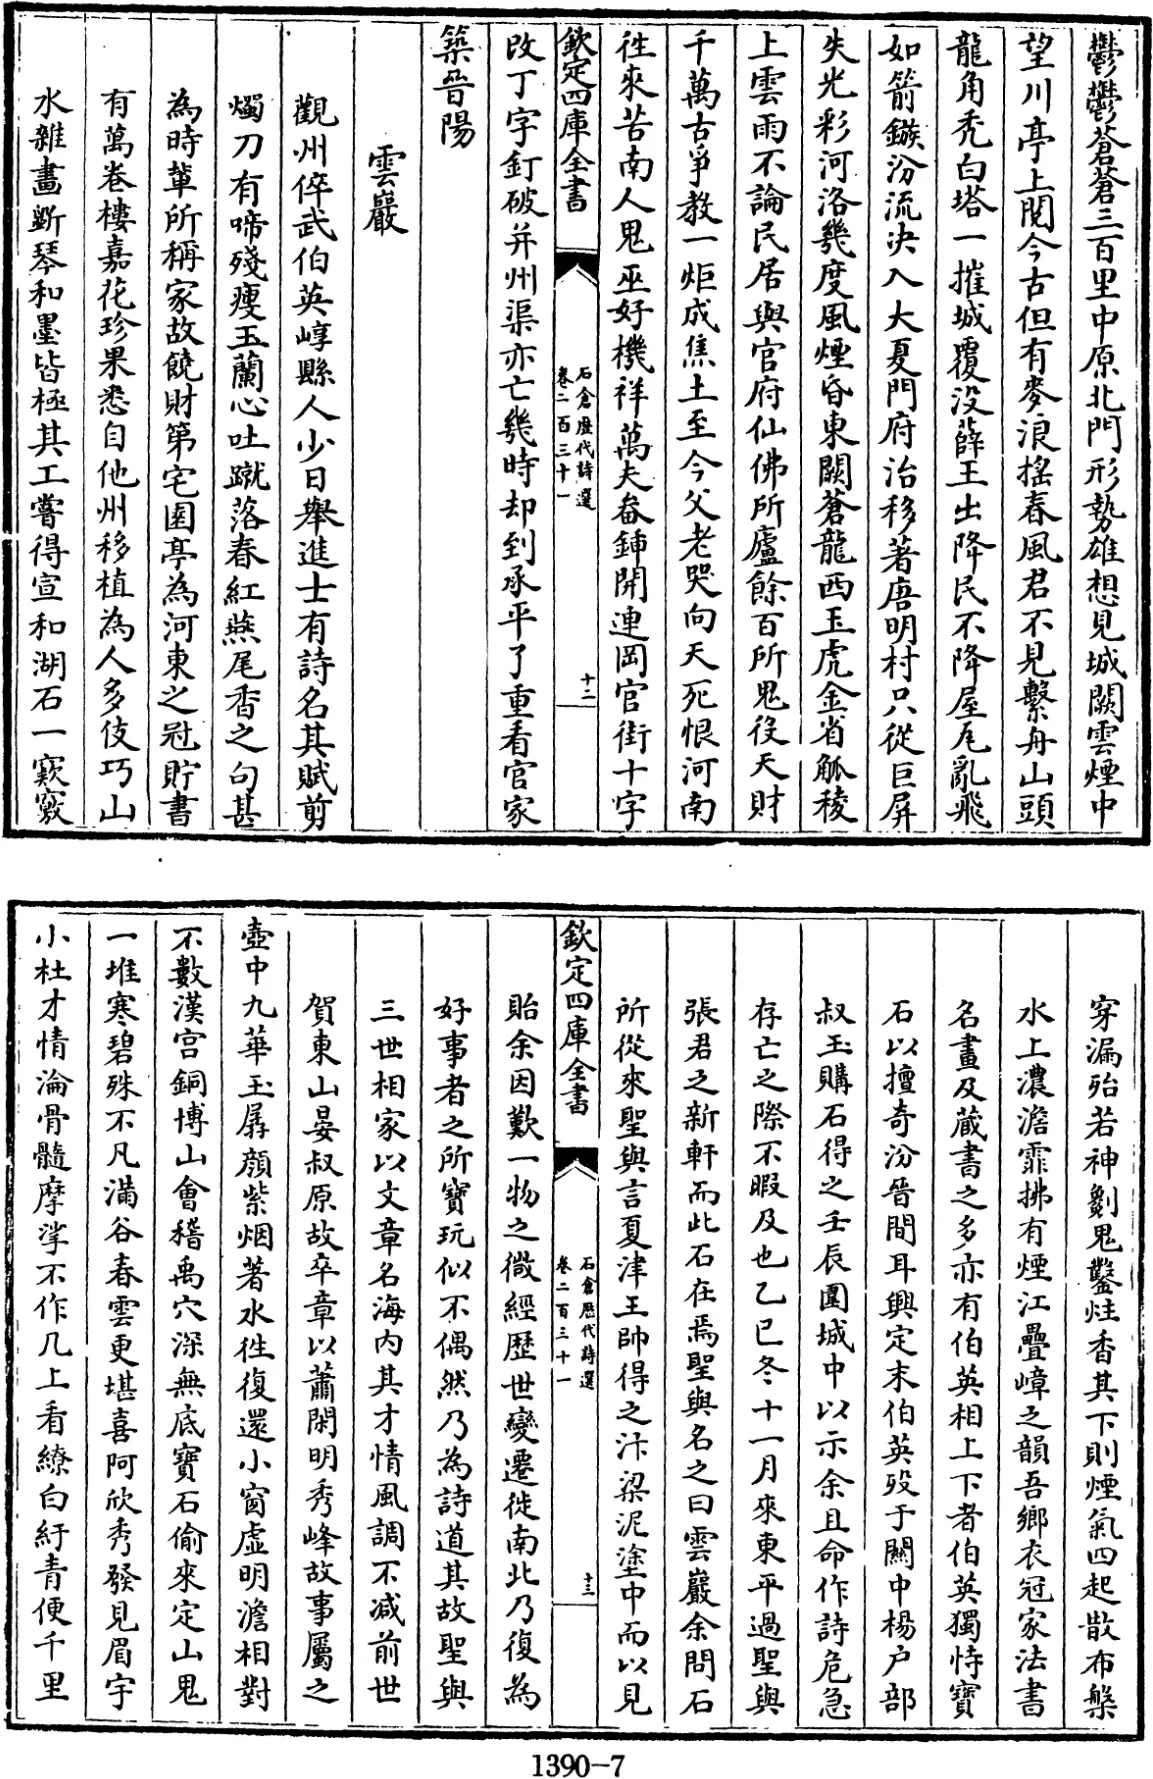 鬱鬱蒼蒼三百里中原北門形勢雄想見城闕雲煙中
望川亭上閱今古但有麥浪搖春風君不見繫舟山頭
龍角禿白塔一摧城覆没薛王出降民不降屋瓦亂飛
如箭鏃汾流决入大夏門府治移著唐明村只從巨屏
失光彩河洛幾度風煙昏東闕蒼龍西玉虎金省觚稜
上雲雨不論民居與官府仙佛所廬餘百所鬼役天財
千萬古爭教一炬成焦土至今父老哭向天死恨河南
徃來苦南人鬼巫好機祥萬夫畚鍤開連岡官街十字
欽定四庫全書
石倉歷代詩選
卷二百三十一
十二
改丁字釘破并州渠亦亡幾時却到承平了重看官家
築晉陽
雲巖
觀州倅武伯英崞縣人少日舉進士有詩名其賦剪
燭刀有啼殘瘦玉蘭心吐蹴落春紅燕尾香之句甚
為時輩所稱家故饒財第宅園亭為河東之冠貯書
有萬卷樓嘉花珍果悉自他州移植為人多伎巧山
水雜畫斵琴和墨皆極其工嘗得宣和湖石一窾竅
穿漏殆若神劖鬼鑿炷香其下則煙氣四起散布槃
水上濃澹霏拂有煙江疊嶂之韻吾鄉衣冠家法書
名畫及藏書之多亦有伯英相上下者伯英獨恃寶
石以擅奇汾晉間耳興定末伯英殁于關中楊户部
叔玉購石得之壬辰圍城中以示余且命作詩危急
存亡之際不暇及也乙巳冬十一月來東平過聖與
張君之新軒而此石在焉聖與名之曰雲巖余問石
所從來聖與言夏津王帥得之汴梁泥塗中而以見
欽定四庫全書
石倉歷代詩選
卷二百三十一
十三
貽余因歎一物之微經歷世變遷徙南北乃復為
好事者之所寶玩似不偶然乃為詩道其故聖與
三世相家以文章名海内其才情風調不减前世
賀東山晏叔原故卒章以蕭閑明秀峰故事屬之
壺中九華玉孱顔紫烟著水徃復還小窗虛明澹相對
不數漢宫銅博山會稽禹穴深無底寶石偷來定山鬼
一堆寒碧殊不凡滿谷春雲更堪喜阿欣秀發見眉宇
小杜才情淪骨髓摩挲不作几上看繚白紆青便千里
1390-7